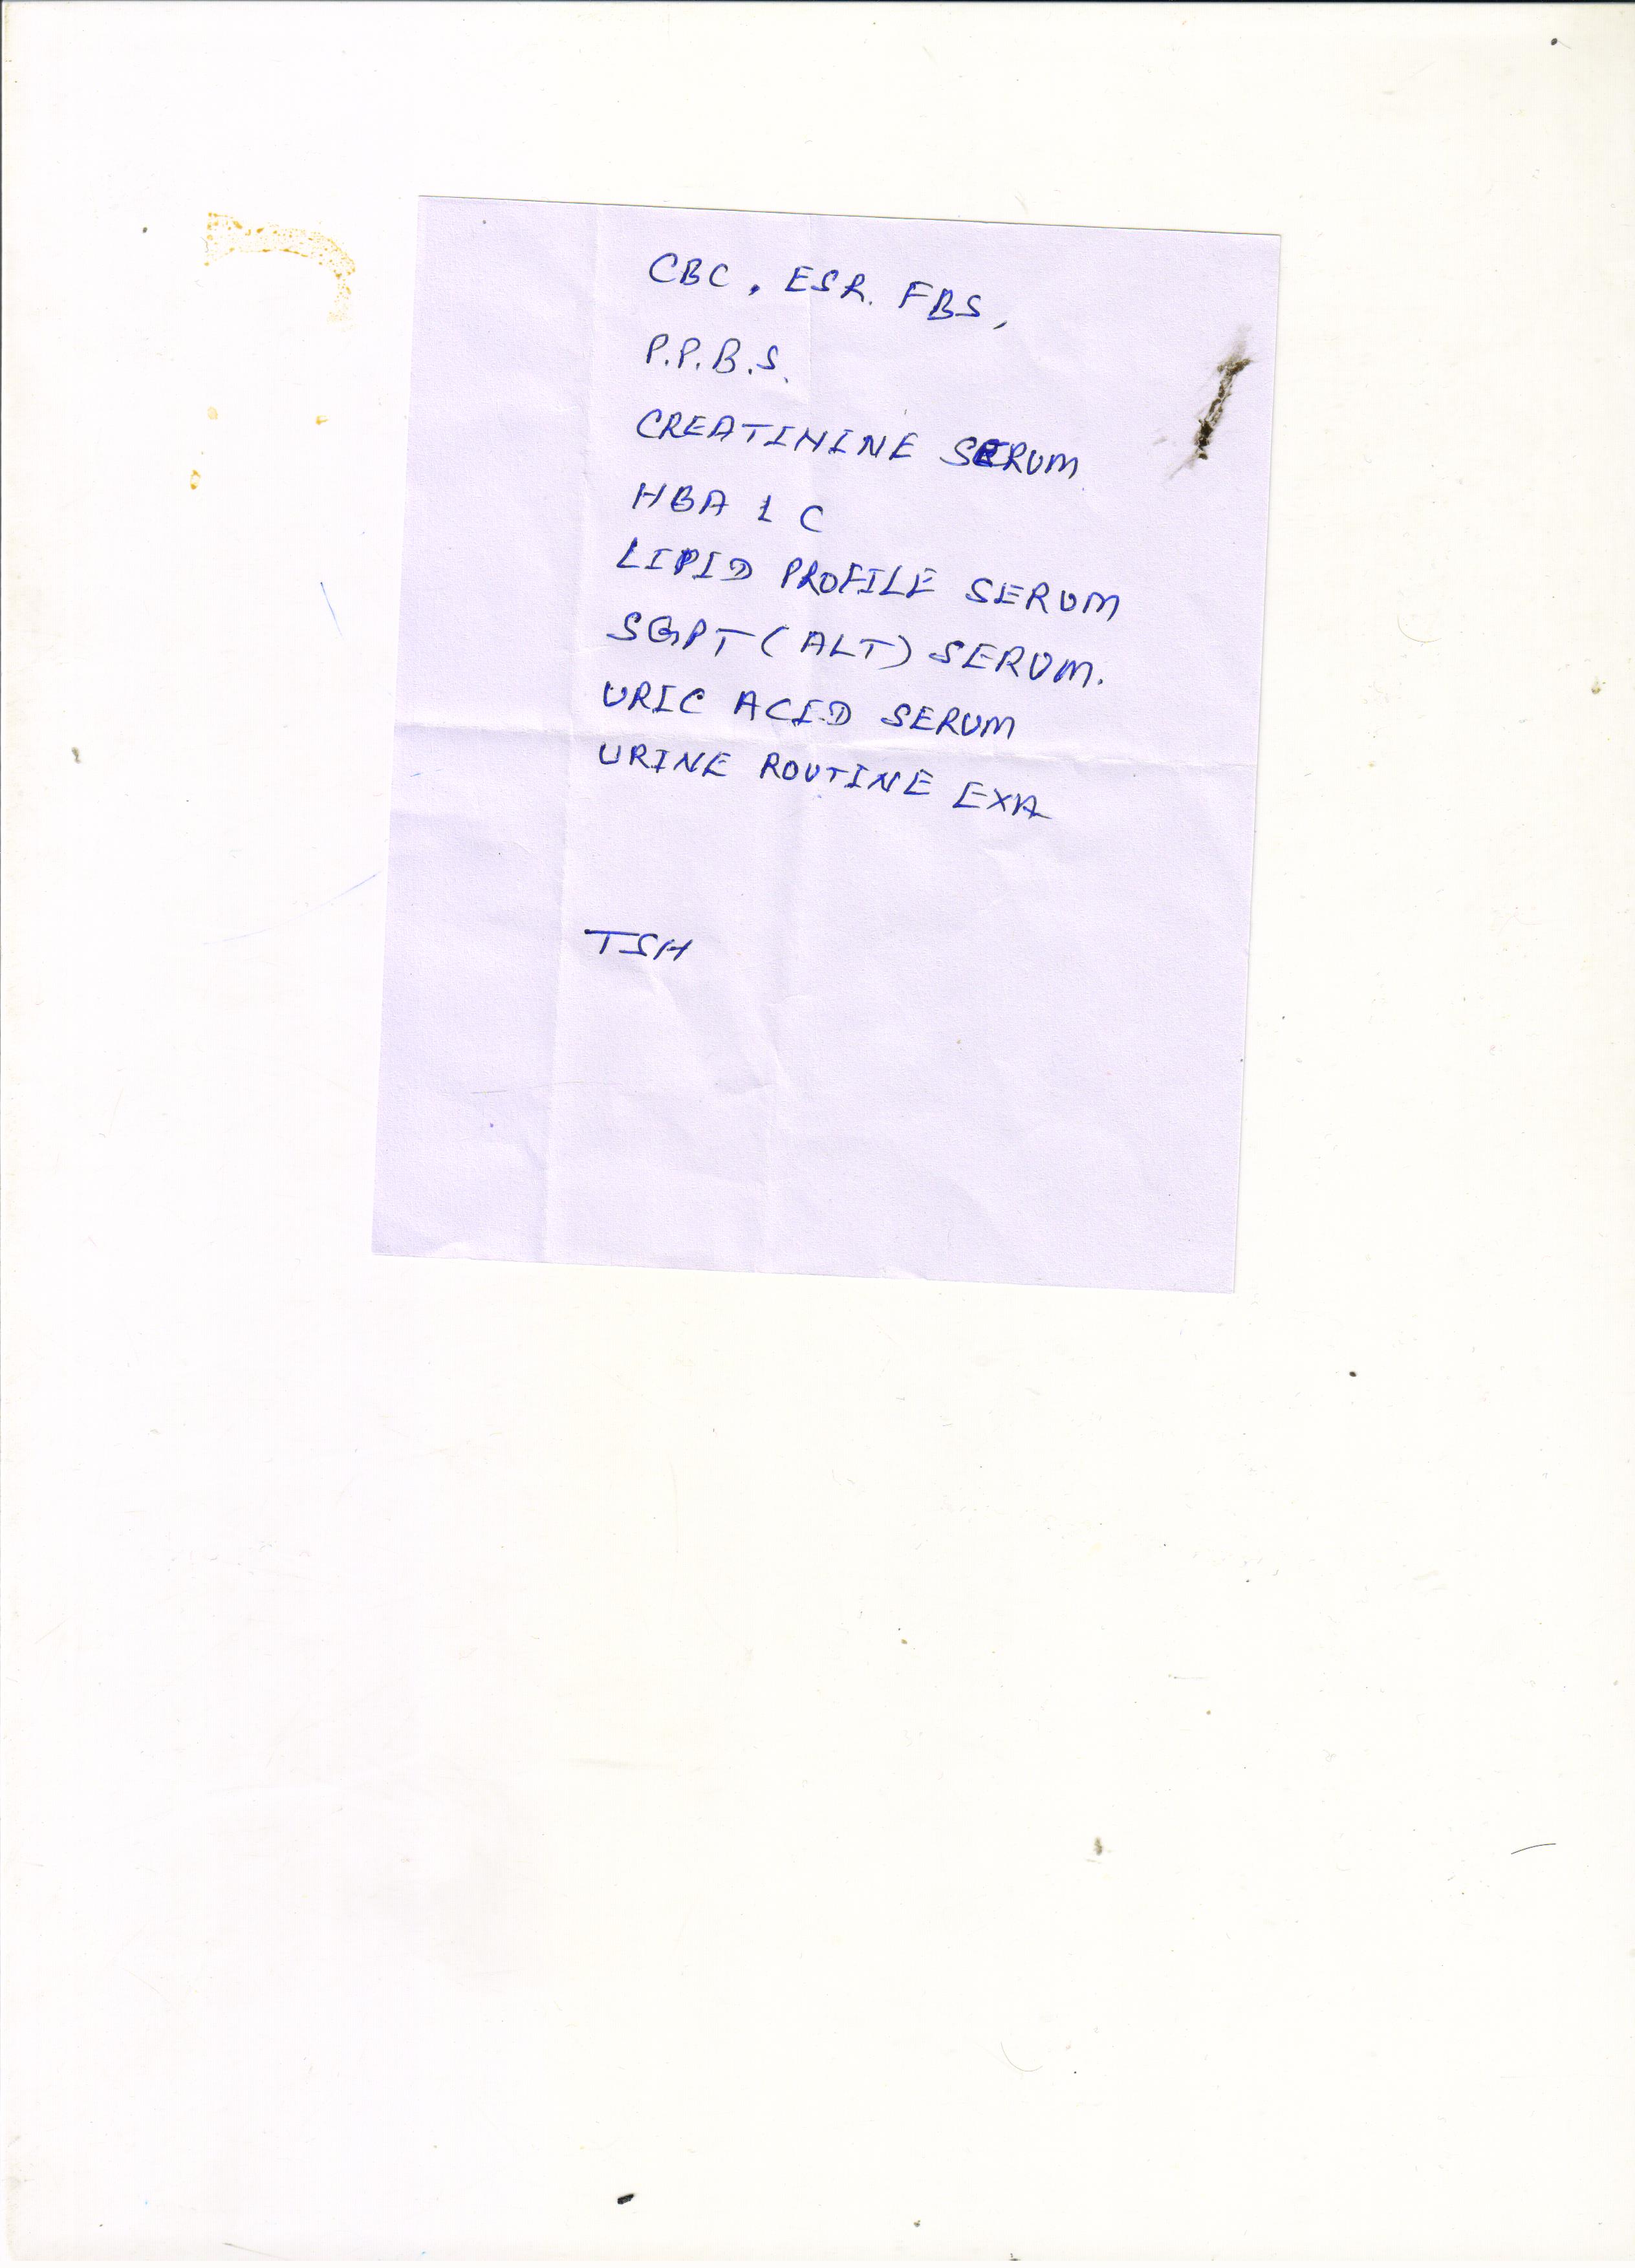 CBC, ESR. FBS,
P.P.B.S.
CREATININE SERUM
HBA 1 C
LIPID PROFILE SERUM
SGPT (ALT) SERUM.
URIC ACID SERUM
URINE ROUTINE EXA
TSH